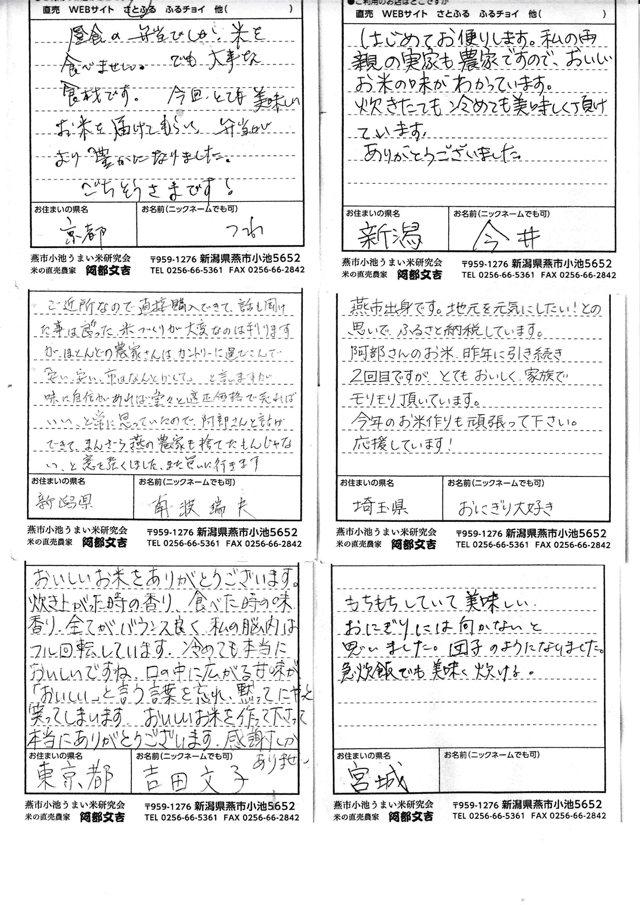 直売　WEBサイト　さとふる　ふるチョイ　他(　　　　)
昼食の弁当でしか、米を
食べません。でも大事な
食材です。今回、とても美味しい
お米を届けてもらい、弁当が
より豊かになりました。
ごちそうさまです!
お住まいの県名　お名前(ニックネームでも可)
京都
燕市小池うまい米研究会　〒959-1276 新潟県燕市小池5652
米の直売農家　阿部文吉　TEL 0256-66-5361　FAX 0256-66-2842
●ご利用のお店はどこですか
直売　WEBサイト　さとふる　ふるチョイ　他(　　　　)
はじめてお便りします。私の両
親の実家も農家ですので、おいしい
お米の味がわかっています。
炊きたても冷めても美味しく頂け
ています。
ありがとうございました。
お住まいの県名　お名前(ニックネームでも可)
新潟　今井
燕市小池うまい米研究会　〒959-1276 新潟県燕市小池5652
米の直売農家　阿部文吉　TEL 0256-66-5361　FAX 0256-66-2842
ご近所なので直接購入できて、話も聞け
た事は良かった。米づくりが大変なのは判ります
が、ほとんどの農家さんはカントリーに運びこんで
安い、安い、市はなんとかして。と言いますが
味に自信があれば堂々と適正価格で売れば
いい、と常に思っていたので、阿部さんと話が
できて、まんざら燕の農家も捨てたもんじゃな
い、と意を強くしました。また買いに行きます
お住まいの県名　お名前(ニックネームでも可)
新潟県　南波瑞夫
燕市小池うまい米研究会　〒959-1276 新潟県燕市小池5652
米の直売農家　阿部文吉　TEL 0256-66-5361　FAX 0256-66-2842
燕市出身です。地元を元気にしたい!との
思いで、ふるさと納税しています。
阿部さんのお米、昨年に引き続き
2回目ですが、とてもおいしく、家族で
モリモリ頂いています。
今年のお米作りも頑張って下さい。
応援しています!
お住まいの県名　お名前(ニックネームでも可)
埼玉県　おにぎり大好き
燕市小池うまい米研究会　〒959-1276 新潟県燕市小池5652
米の直売農家　阿部文吉　TEL 0256-66-5361　FAX 0256-66-2842
おいしいお米をありがとうございます。
炊き上がった時の香り、食べた時の味
香り、全てがバランス良く、私の脳内は
フル回転しています。冷めても本当に
おいしいですね。口の中に広がる甘味が
「おいしい」と言う言葉を忘れ、黙ってニヤッと
笑ってしまいます。おいしいお米を作って下さって
本当にありがとうございます。感謝しか
ありません
お住まいの県名　お名前(ニックネームでも可)
東京都　吉田文子
燕市小池うまい米研究会　〒959-1276 新潟県燕市小池5652
米の直売農家　阿部文吉　TEL 0256-66-5361　FAX 0256-66-2842
もちもちしていて美味しい
おにぎりには向かないと
思いました。団子のようになりました。
急炊飯でも美味く炊ける。
お住まいの県名　お名前(ニックネームでも可)
宮城
燕市小池うまい米研究会　〒959-1276 新潟県燕市小池5652
米の直売農家　阿部文吉　TEL 0256-66-5361　FAX 0256-66-2842